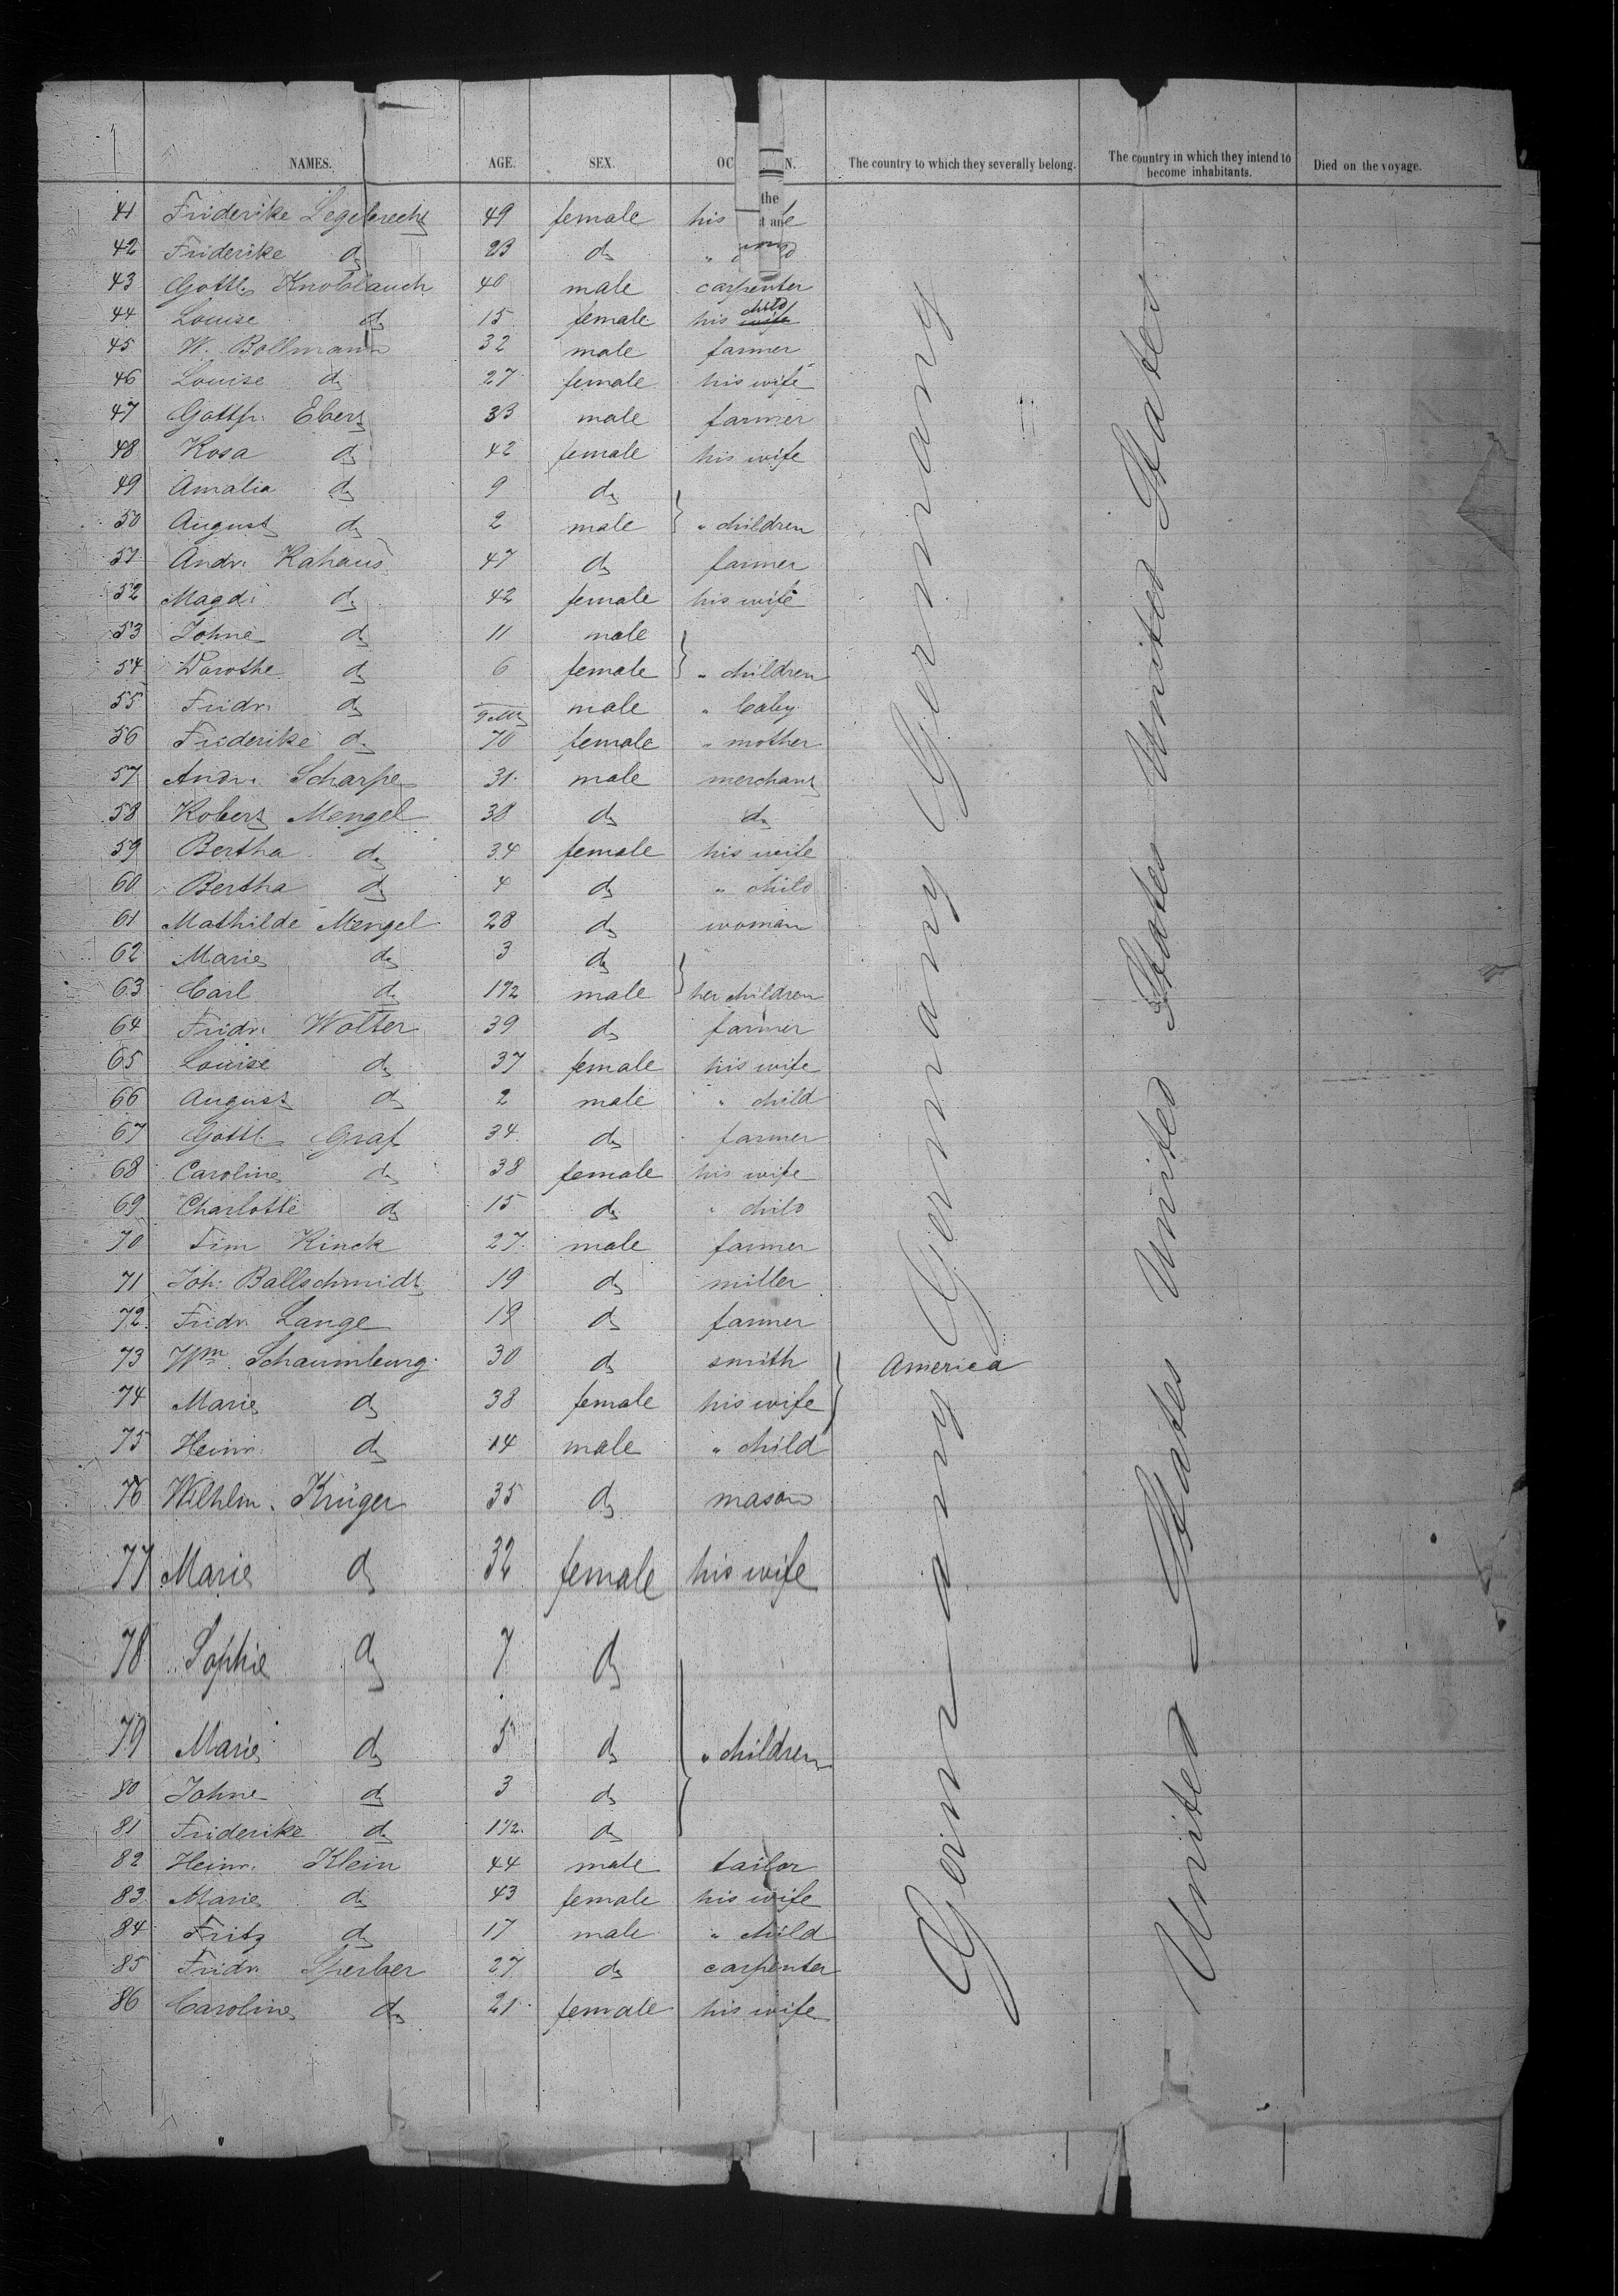 NAMES. AGE. SEX. OC N. The country to which they severally belong. The country in which they intend to become inhabitants. Died on the voyage.
the
t and
41 Friderike Legebrecht 49 female his
42 Friderike do 23 do "
43 Gottl. Knoblauch 40 male carpenter
44 Louise do 15 female his wife child
45 W. Bollmann 32 male farmer
46 Louise do 27 female his wife
47 Gottfr. Ebert 33 male farmer
48 Rosa do 42 female his wife
49 Amalia do 9 do
50 August do 2 male " children
51 Andr. Rahaus 47 do farmer
52 Magd. do 42 female his wife
53 Johne do 11 male
54 Dorothe do 6 female " children
55 Fridr. do 9 M male " baby
56 Friderike do 70 female " mother
57 Andr. Scharpe 31 male merchant
58 Robert Mengel 38 do do
59 Bertha do 34 female his wife
60 Bertha do 4 do " child
61 Mathilde Mengel 28 do woman
62 Marie do 3 do
63 Carl do 1 1/2 male her children
64 Fridr. Wolter 39 do farmer
65 Louise do 37 female his wife
66 August do 2 male " child
67 Gottl. Graf 34 do farmer
68 Caroline do 38 female his wife
69 Charlotte do 15 do " child
70 Tim Rinck 27 male farmer
71 Joh. Ballschmidt 19 do miller
72 Fridr. Lange 19 do farmer
73 Wm. Schaumburg 30 do smith America
74 Marie do 38 female his wife
75 Heinr. do 14 male " child
76 Wilhlm. Krüger 35 do mason
77 Marie do 32 female his wife
78 Sophie do 7 do
79 Marie do 5 do " children
80 Johne do 3 do
81 Friderike do 1 1/2 do
82 Heinr. Klein 44 male tailor
83 Marie do 43 female his wife
84 Fritz do 17 male " child
85 Fridr. Sperber 27 do carpenter
86 Caroline do 21 female his wife
Germany Germany Germany
United States United States United States